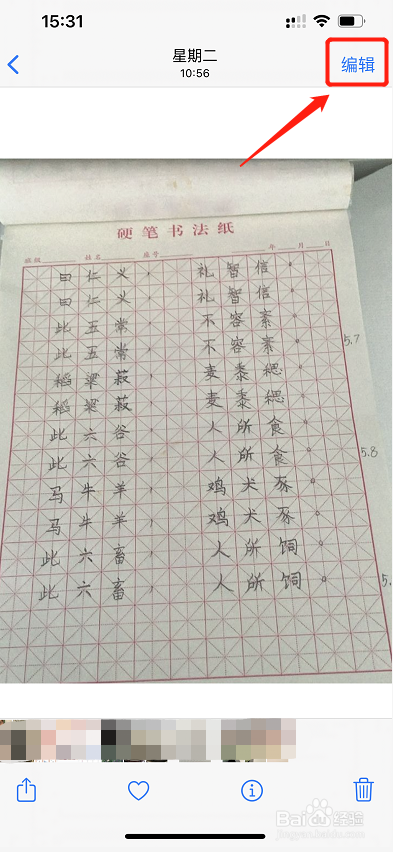 15:31
星期二
10:56
编辑
硬笔书法纸
班级 姓名 座号 年 月 日
曰仁义，礼智信。
曰仁义，礼智信。
此五常，不容紊。
此五常，不容紊。
5.7
稻粱菽，麦黍稷。
稻粱菽，麦黍稷。
此六谷，人所食。
5.8
此六谷，人所食。
马牛羊，鸡犬豕。
马牛羊，鸡犬豕。
此六畜，人所饲。
此六畜，人所饲。
5.
Baidu 经验
jingyan.baidu.com